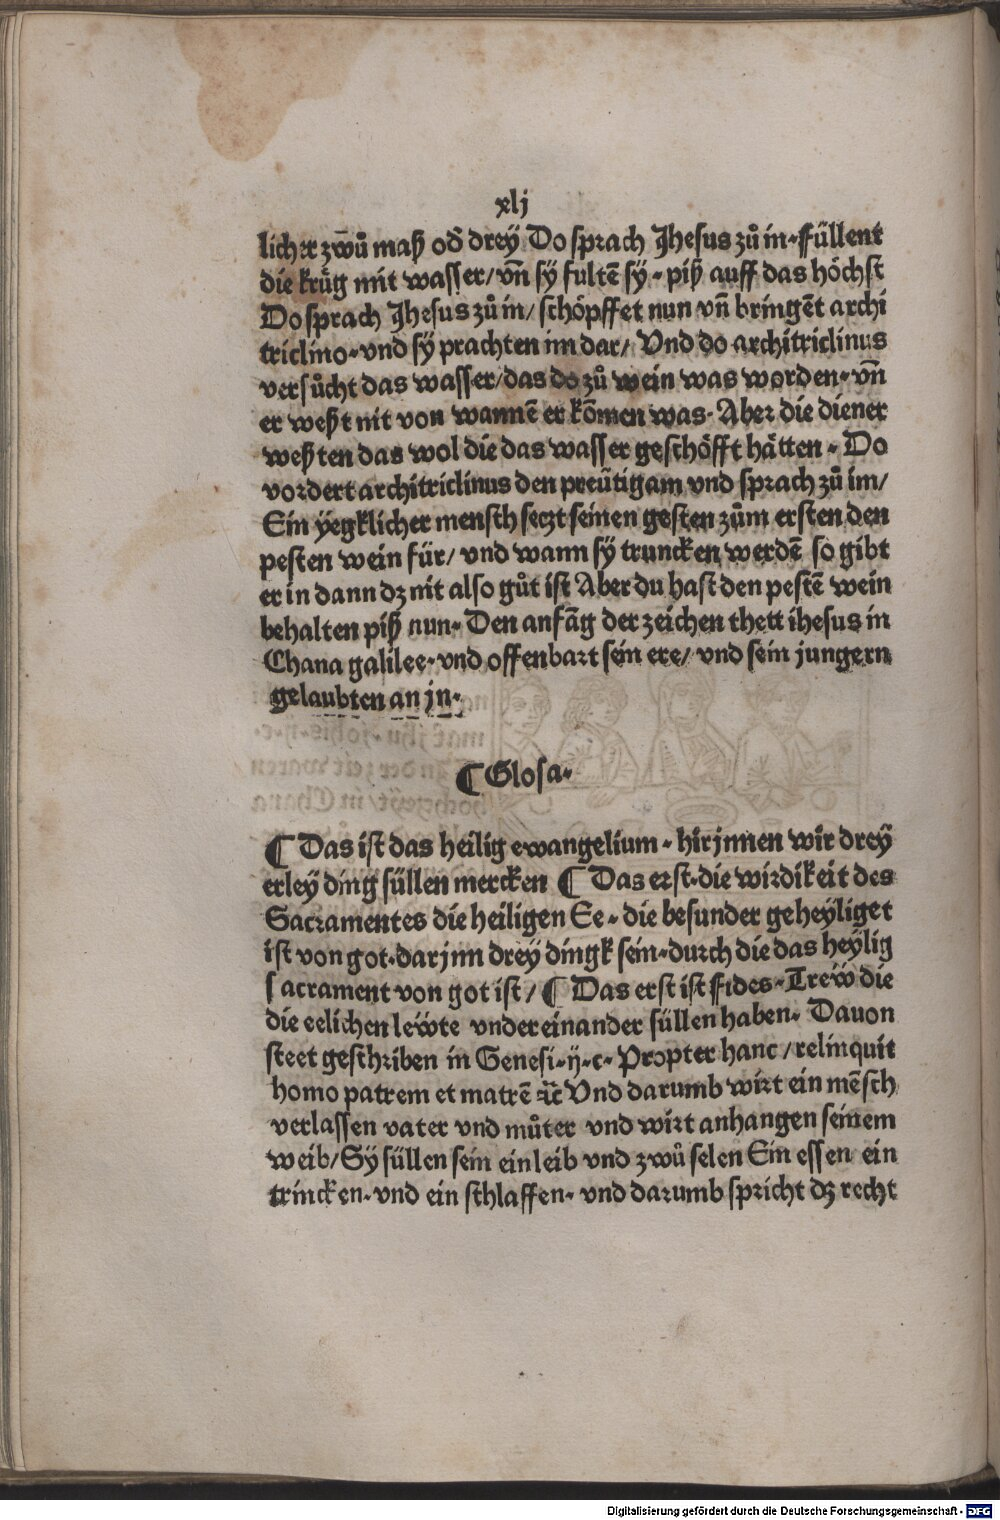 xlj
licher zwů maß od̄ drey Do sprach Jhesus zů in· Füllent
die krüg mit wasser/ vn̄ sÿ fultē sÿ· piß auff das höchst
Do sprach Jhesus zů in/ schöpffet nun vn̄ bringēt archi
triclino· vnd sÿ prachten im dar/ Vnd do architriclinus
versůcht das wasser/ das do zů wein was worden· vn̄
er weßt nit von wannē er kōmen was· Aber die diener
weßten das wol die das wasser geschöfft hätten· Do
vordert architriclinus den preütigam vnd sprach zů im/
Ein ÿegklicher mensch seczt seinen gesten zům ersten den
pesten wein für/ vnd wann sÿ truncken werdē so gibt
er in dann dz nit also gůt ist Aber du hast den pestē wein
behalten piß nun· Den anfāg der zeichen thett ihesus in
Chana galilee· vnd offenbart sein ere/ vnd sein jungern
gelaubten an jn·
¶ Glosa·
¶ Das ist das heilig ewangelium· hirjnnen wir dreÿ
erleÿ ding süllen mercken ¶ Das erst· die wirdikeit des
Sacramentes die heiligen Ee· die besunder geheÿliget
ist von got· darjnn dreÿ dingk sein· durch die das heÿlig
sacrament von got ist/ ¶ Das erst ist Fides· Trew die
die eelichen lewte vndereinander süllen haben· Dauon
steet geschriben in Genesi· ij· c· Propter hanc/ relinquit
homo patrem et matrē ꝛc̄ Vnd darumb wirt ein mēsch
verlassen vater vnd můter vnd wirt anhangen seinem
weib/ Sÿ süllen sein ein leib vnd zwů selen Ein essen ein
trincken· vnd ein schlaffen· vnd darumb spricht dz recht
Digitalisierung gefördert durch die Deutsche Forschungsgemeinschaft - DFG